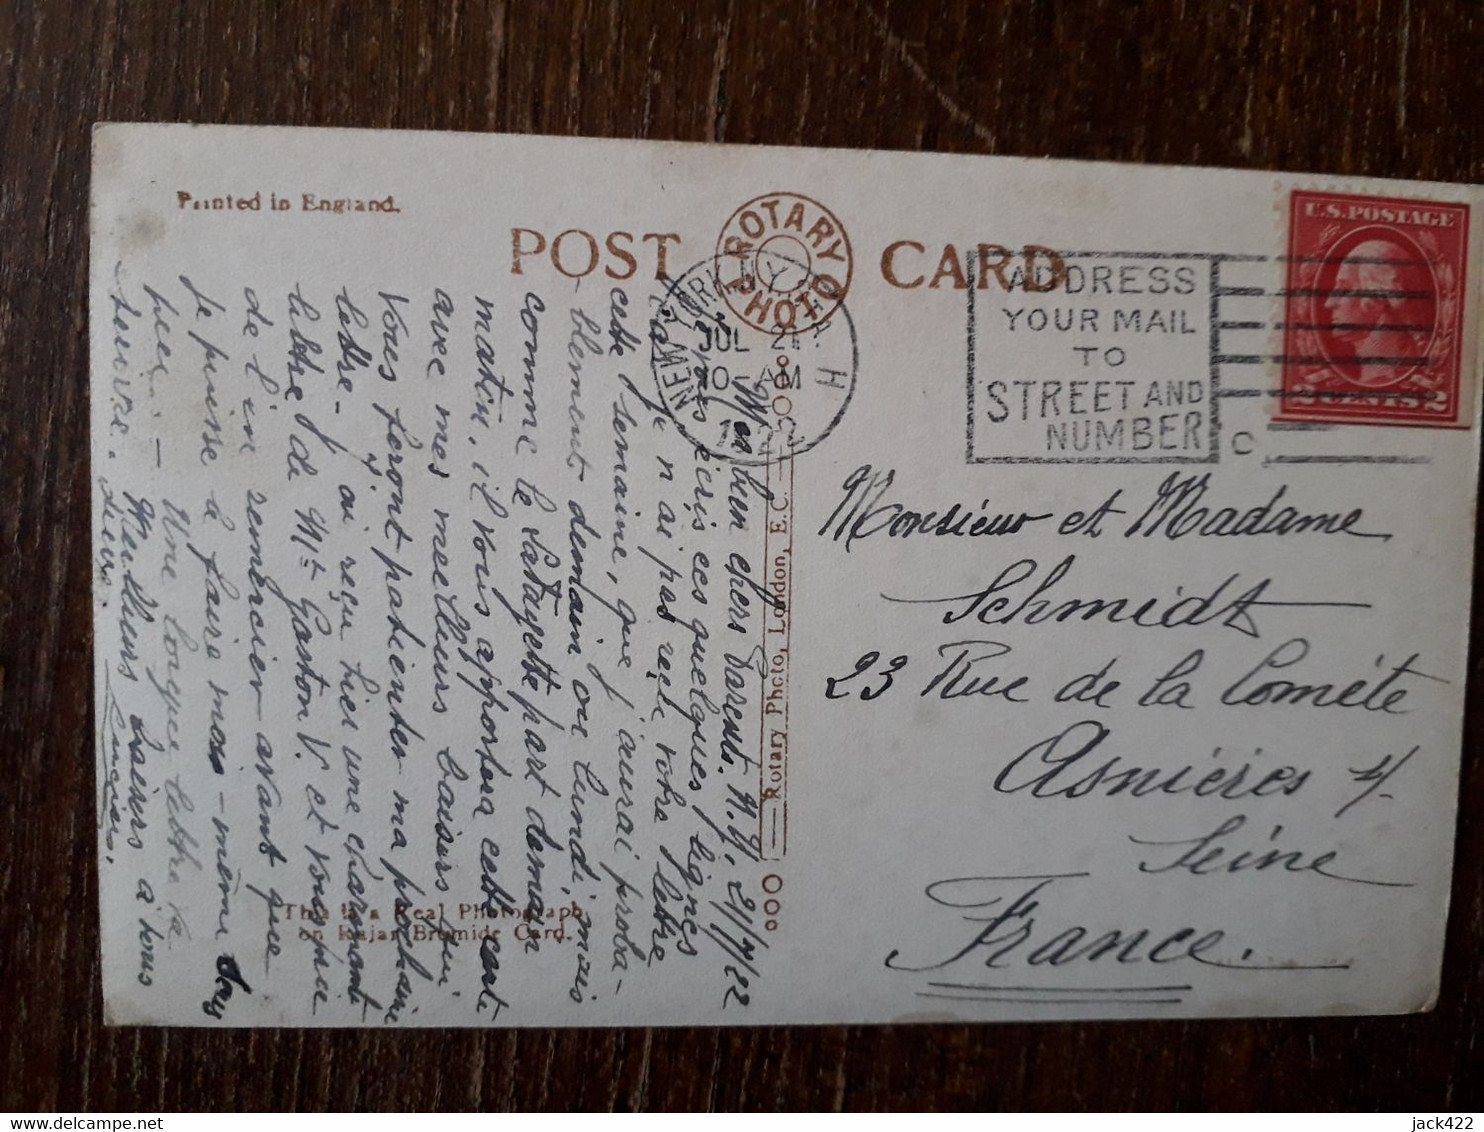 Printed in England.
POST CARD
ROTARY PHOTO
NEW YORK N.Y. STA. H
JUL 21
10-AM
1922
ADDRESS
YOUR MAIL
TO
STREET AND
NUMBER
U.S. POSTAGE
2 CENTS 2
Monsieur et Madame
Schmidt
23 Rue de la Comète
Asnières s/
Seine
France.
Rotary Photo, London, E.C.
This is a Real Photograph
on Bromide Card.
Mes bien chers Parents. N.Y. 21/7/22
Je vous écris ces quelques lignes
car je n'ai pas reçu votre lettre
cette semaine, que j'aurai proba-
blement demain ou lundi, mais
comme le Lafayette part demain
matin, il vous apportera cette carte
avec mes meilleurs baisers qui
vous feront patienter ma prochaine
lettre. J'ai reçu hier une charmante
lettre de Mr Gaston V. et vous prie
de l'en remercier avant que
je puisse le faire moi-même
Une longue lettre va
suivre. Meilleurs baisers à vous
deux.
Lucien.
jack422